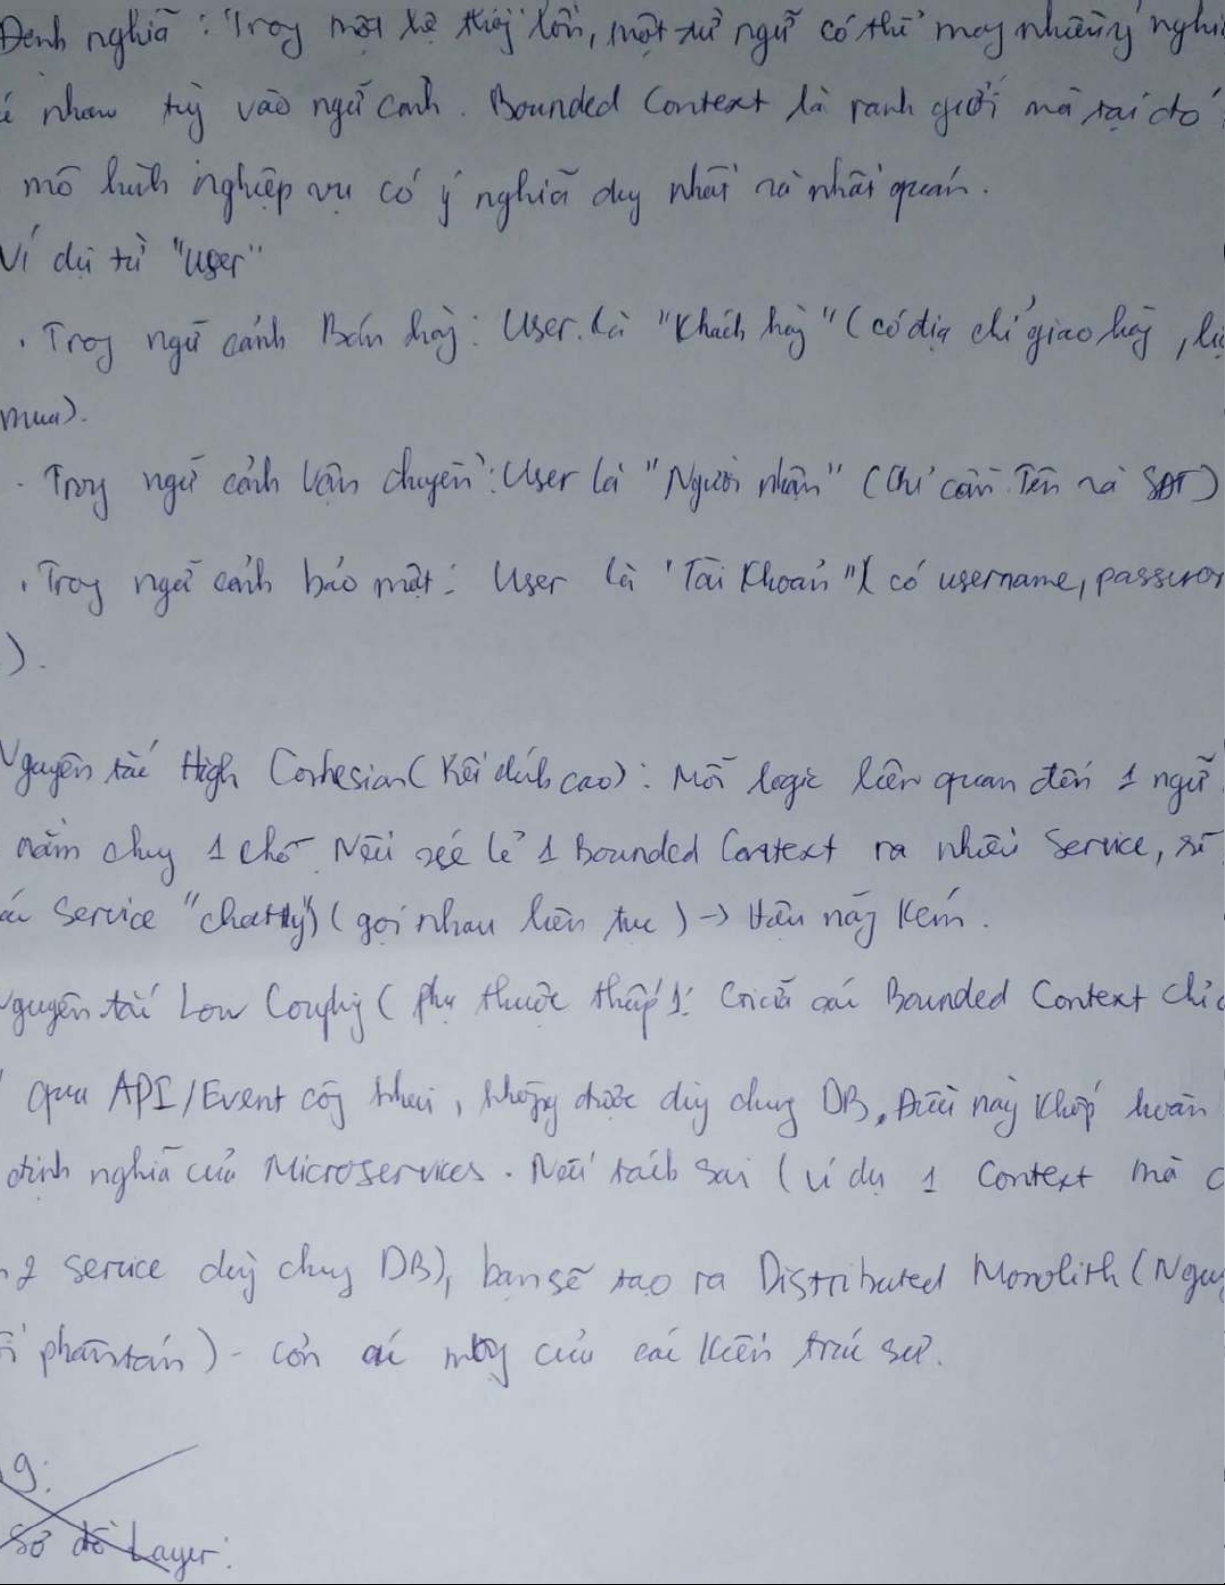 Định nghĩa : Trong một hệ thống lớn, một từ ngữ có thể mang nhiều ý nghĩ
nhau tùy vào ngữ cảnh. Bounded Context là ranh giới mà tại đó
mô hình nghiệp vụ có ý nghĩa duy nhất và nhất quán.
Ví dụ từ "User"
. Trong ngữ cảnh Bán hàng: User là "Khách hàng" (có địa chỉ giao hàng, lị
mua).
. Trong ngữ cảnh Vận chuyển: User là "Người nhận" (Chỉ cần Tên và SĐT)
. Trong ngữ cảnh bảo mật: User là 'Tài khoản" ( có username, passwor
).
Nguyên tắc High Corhesian (Kết dính cao): Mỗi logic liên quan đến 1 ngữ
nằm chung 1 chỗ. Nếu xé lẻ 1 Bounded Context ra nhiều Service, sẽ
Service "chatty") (gọi nhau liên tục) -> Hiệu năng kém.
Nguyên tắc Low Couplig ( phụ thuộc thấp): Giữa các Bounded Context chỉ
qua API/Event công khai, không được dùng chung DB. Điều này khớp hoàn
định nghĩa của Microservices. Nếu tách sai (ví dụ 1 Context mà
2 service dùng chung DB), bạn sẽ tạo ra Distributed Monolith (Nguy
phân tán) - cơn ác mộng của các kiến trúc sư.
9:
Sơ đồ Layer: